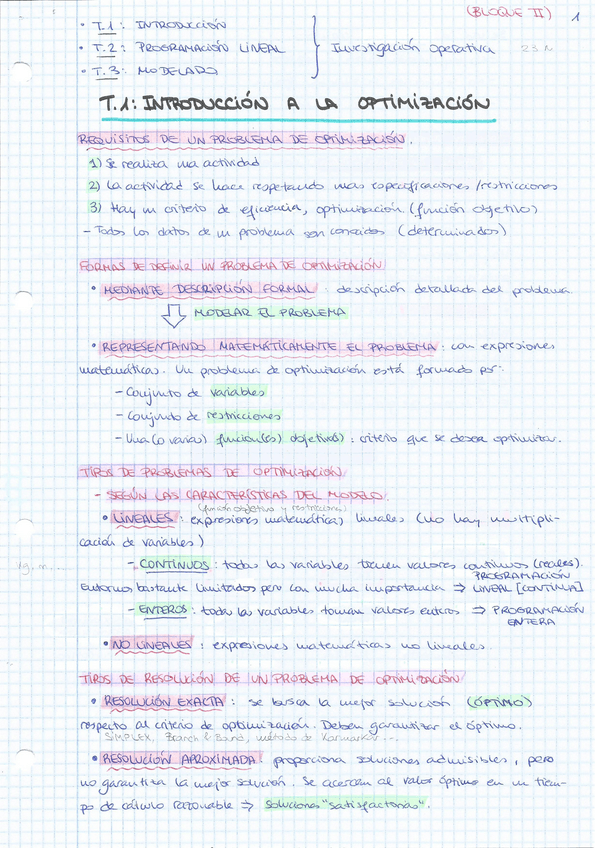 (BLOQUE II) 1
• T.1: INTRODUCCIÓN
• T.2: PROGRAMACIÓN LINEAL
• T.3: MODELADO
Investigación operativa
T.1: INTRODUCCIÓN A LA OPTIMIZACIÓN
REQUISITOS DE UN PROBLEMA DE OPTIMIZACIÓN.
1) Se realiza una actividad
2) La actividad se hace respetando unas especificaciones/restricciones
3) Hay un criterio de eficiencia, optimización. (función objetivo)
- Todos los datos de un problema son conocidos (determinados)
FORMAS DE DEFINIR UN PROBLEMA DE OPTIMIZACIÓN
• MEDIANTE DESCRIPCIÓN FORMAL: descripción detallada del problema
MODELAR EL PROBLEMA
• REPRESENTANDO MATEMÁTICAMENTE EL PROBLEMA: con expresiones
matemáticas. Un problema de optimización está formado por:
- Conjunto de variables
- Conjunto de restricciones
- Una (o varias) funcion(es) objetivo(s): criterio que se desea optimizar.
TIPOS DE PROBLEMAS DE OPTIMIZACIÓN
- SEGÚN LAS CARACTERÍSTICAS DEL MODELO.
(función objetivo y restricciones)
• LINEALES: expresiones matemáticas lineales (no hay multipli-
cación de variables)
- CONTÍNUOS: todas las variables tienen valores continuos (reales).
Entornos bastante limitados pero con mucha importancia ⇒ PROGRAMACIÓN LINEAL [CONTÍNUA]
- ENTEROS: todas las variables toman valores enteros ⇒ PROGRAMACIÓN
ENTERA
• NO LINEALES: expresiones matemáticas no lineales.
TIPOS DE RESOLUCIÓN DE UN PROBLEMA DE OPTIMIZACIÓN
• RESOLUCIÓN EXACTA: se busca la mejor solución (ÓPTIMO)
respecto al criterio de optimización. Deben garantizar el óptimo.
SIMPLEX, Branch & Bound, método de Karmarkar...
• RESOLUCIÓN APROXIMADA: proporciona soluciones admisibles, pero
no garantiza la mejor solución. Se acercan al valor óptimo en un tiem-
po de cálculo razonable ⇒ soluciones "satisfactorias".